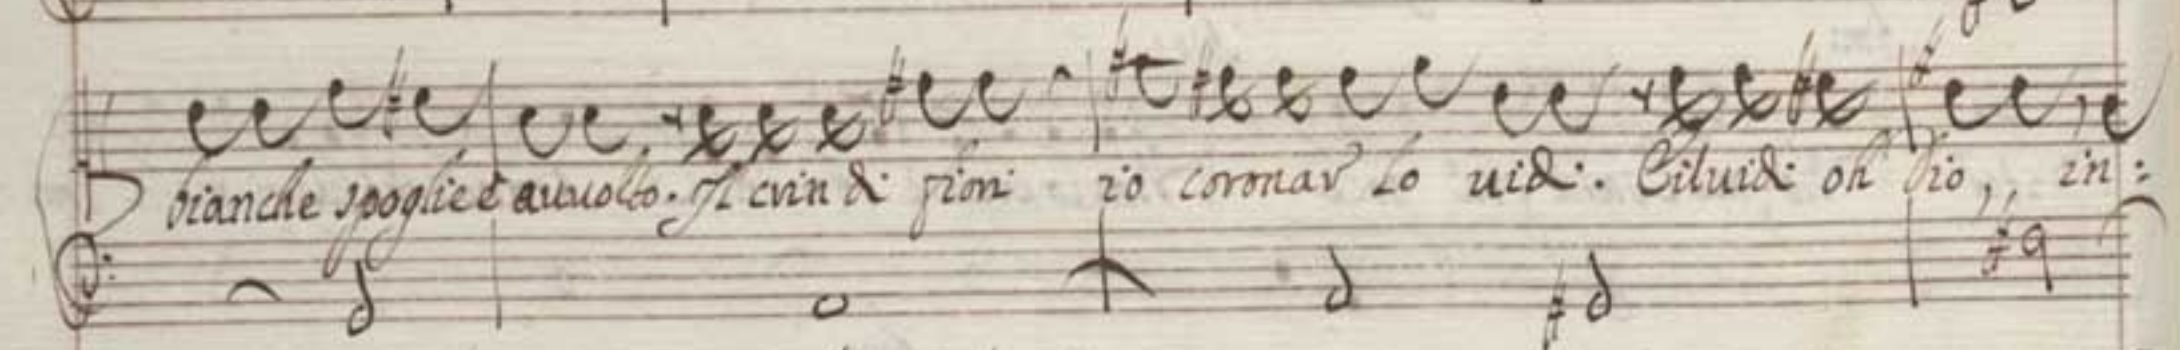 bianche spoglie è auuolto. Il crin di fiori io coronar lo uidi. Ei luidi oh Dio, in: